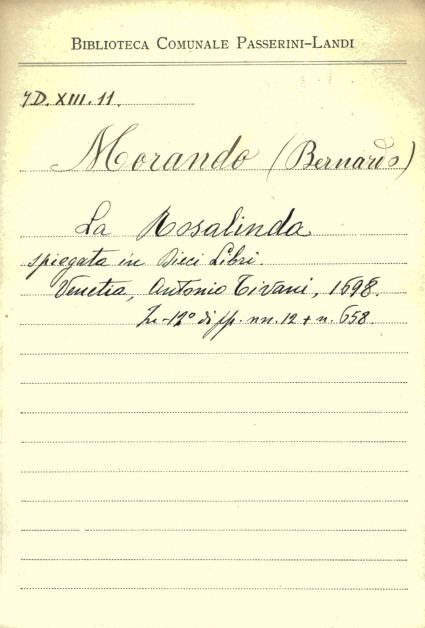 BIBLIOTECA COMUNALE PASSERINI-LANDI
4D. XIII. 11.
Morando (Bernardo)
La Rosalinda
spiegata in Dieci Libri.
Venetia, Antonio Tivani, 1698.
In-12° di pp. nn. 12 + n. 658.